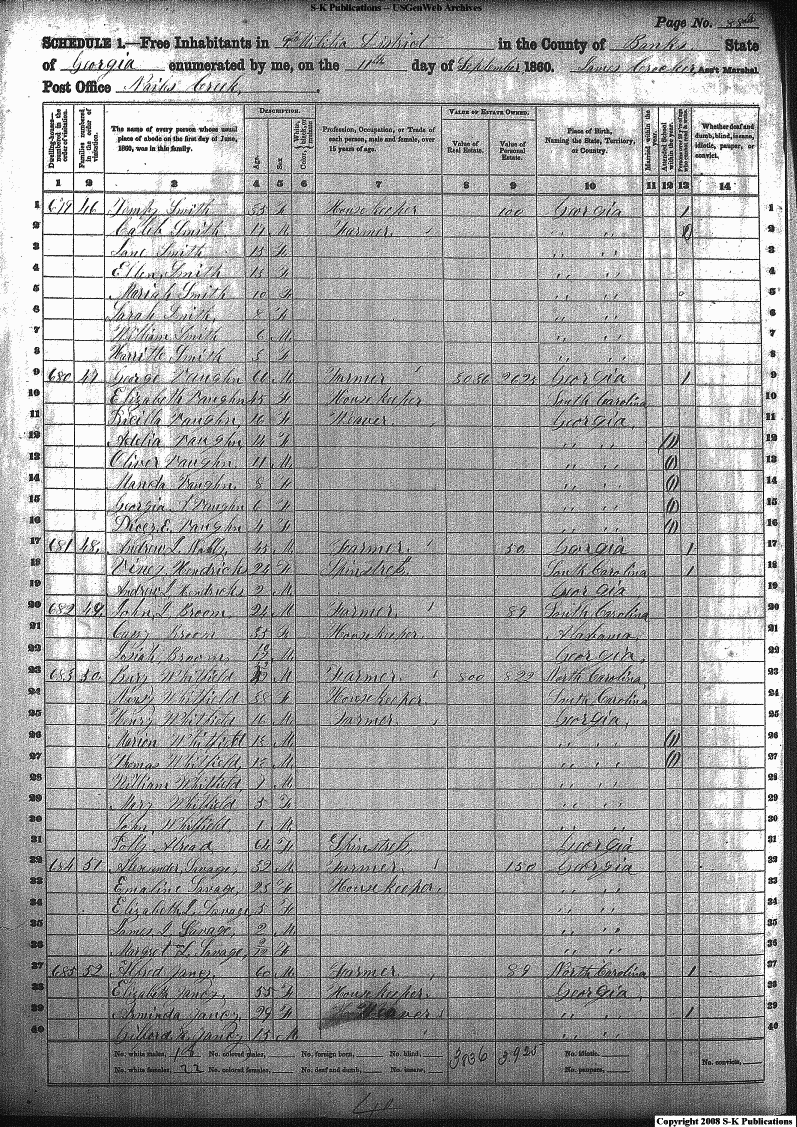 S-K Publications -- USGenWeb Archives
Page No. 88
SCHEDULE 1.—Free Inhabitants in Militia District in the County of Banks State
of Georgia enumerated by me, on the 11th day of September 1860. James Crocker, Ass't Marshal.
Post Office Creek.
Dwelling-houses—numbered in the order of visitation. Families numbered in the order of visitation. The name of every person whose usual place of abode on the first day of June, 1860, was in this family. DESCRIPTION. Age. Sex. Color, White, black, or mulatto. Profession, Occupation, or Trade of each person, male and female, over 15 years of age. VALUE OF ESTATE OWNED. Value of Real Estate. Value of Personal Estate. Place of Birth, Naming the State, Territory, or Country. Married within the year. Attended School within the year. Whether deaf and dumb, blind, insane, idiotic, pauper, or convict.
1 2 3 4 5 6 7 8 9 10 11 12 13 14
1 679 46 Smith 55 F Housekeeper 100 Georgia 1 1
2 Caleb Smith 17 M Farmer " " 2
3 Jane Smith 15 F " " 3
4 Ellen Smith 13 F " " 4
5 Mariah Smith 10 F " " 5
6 Sarah Smith 8 F " " 6
7 William Smith 6 M " " 7
8 Harriett Smith 5 F " " 8
9 680 47 George Vaughn 66 M Farmer 2625 Georgia 1 9
10 Elizabeth Vaughn 45 F Housekeeper South Carolina 10
11 Vaughn 16 F Weaver Georgia 11
12 Adelia Vaughn 14 F " " (1) 12
13 Oliver Vaughn 11 M " " (1) 13
14 Manda Vaughn 8 F " " (1) 14
15 Georgia Vaughn 6 F " " (1) 15
16 E. Vaughn 4 F " " (1) 16
17 681 48 Andrew L. 45 M Farmer 50 Georgia 1 17
18 Viney Hendricks 26 F Spinstress South Carolina 1 18
19 Andrew J Hendricks 2 M Georgia 19
20 682 49 John J. Broom 21 M Farmer 89 South Carolina 20
21 Broom 35 F Housekeeper Alabama 21
22 Josiah Broom M Georgia 22
23 683 50 Whitfield M Farmer 800 822 North Carolina 23
24 Nancy Whitfield 38 F Housekeeper South Carolina 24
25 Henry Whitfield 16 M Farmer Georgia 25
26 Marion Whitfield 15 M " " (1) 26
27 Thomas Whitfield 12 M " " (1) 27
28 William Whitfield 7 M " " 28
29 Mary Whitfield 5 F " " 29
30 John Whitfield 1 M " " 30
31 Polly 64 F Spinstress Georgia 31
32 684 51 Alexander Savage 52 M Farmer 150 Georgia 32
33 Emaline Savage 25 F Housekeeper " " 33
34 Elizabeth L. Savage 5 F " " 34
35 James J. Savage 2 M 35
36 Margret L. Savage F " " 36
37 685 52 Janey 60 M Farmer 89 North Carolina 1 37
38 Elizabeth Janey 55 F Housekeeper Georgia 38
39 Arminda Janey 29 F Weaver " " 1 39
40 Janey 15 M " " 40
No. white males, 18 No. colored males, No. foreign born, No. blind, 3836 3925 No. idiotic,
No. white females, 22 No. colored females, No. deaf and dumb, No. insane, No. paupers, No. convicts,
Copyright 2008 S-K Publications